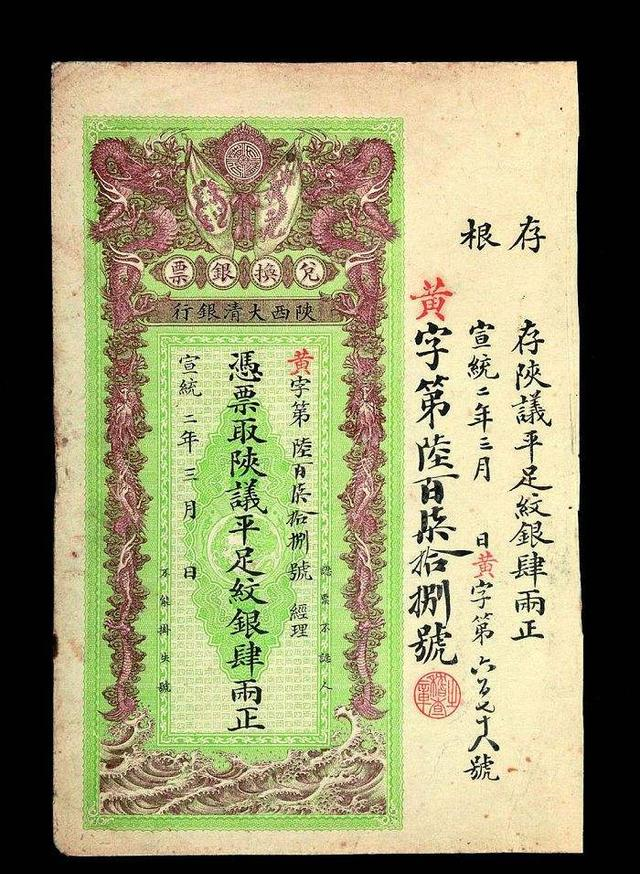 存根
存陝議平足紋銀肆兩正
宣統二年三月 日黃字第六百七十八號
黃字第陸百柒拾捌號
兌換銀票
陝西大清銀行
認票不認人
黃字第陸百柒拾捌號 經理
憑票取陝議平足紋銀肆兩正
宣統二年三月 日
不能掛失號